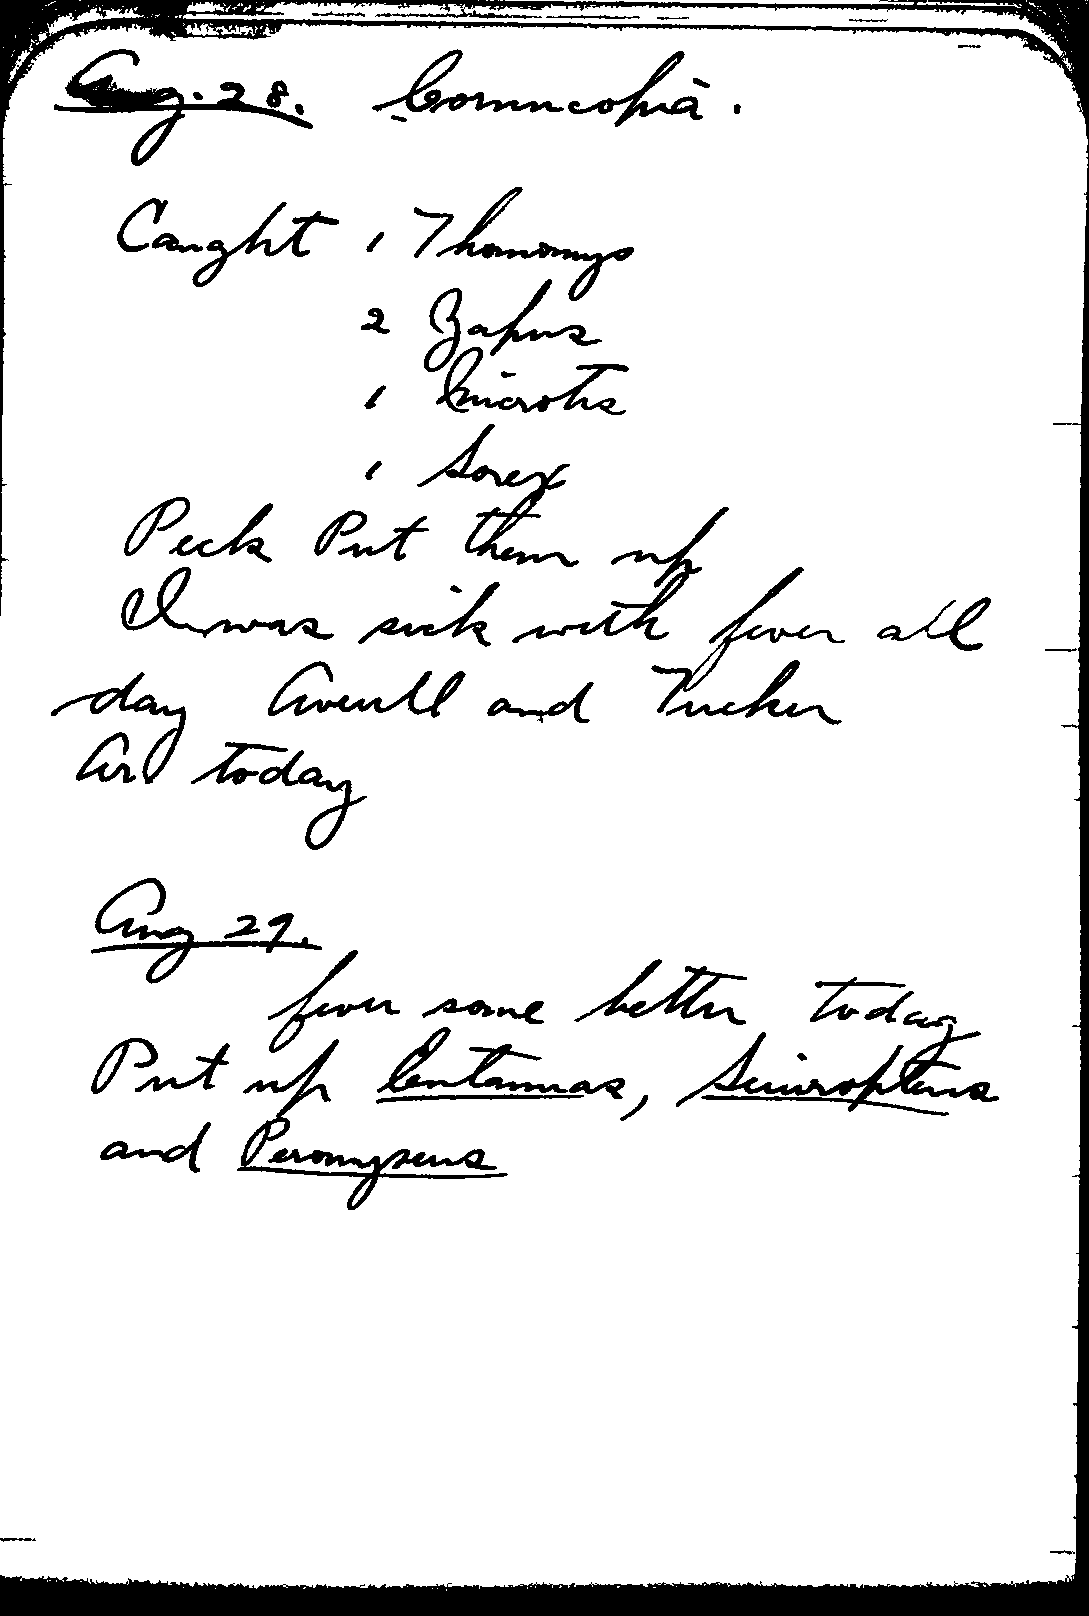 Aug. 28. Cornucopia.
Caught 1 Thomomys
2 Zapus
1 Microtis
1 Sorex
Peck Put them up
I was sick with fever all
day Averill and Tucker
Ar today
Aug 29.
fever some better today
Put up Centamas, Sciuroptens
and Peromyscus